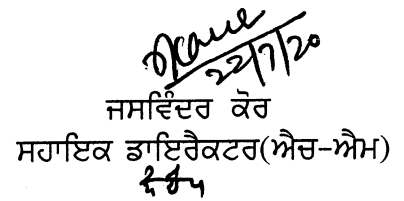 22/7/20
ਜਸਵਿੰਦਰ ਕੋਰ
ਸਹਾਇਕ ਡਾਇਰੈਕਟਰ(ਐਚ-ਐਮ)